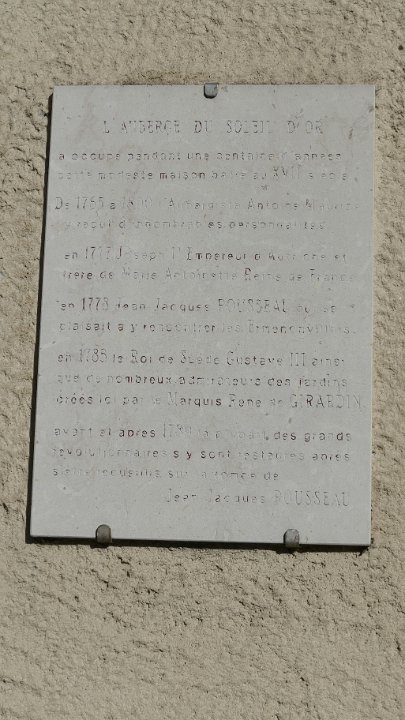 L'AUBERGE DU SOLEIL D'OR
a occupé pendant une centaine d'années
cette modeste maison bâtie au XVII siècle
De 1755 à l'Aubergiste Antoine Maurice
y reçut d'innombrables personnalités
en 1777 Joseph II Empereur d'Autriche et
frère de Marie Antoinette Reine de France
en 1778 Jean Jacques ROUSSEAU qui se
plaisait à y rencontrer les Ermenonvillois
en 1783 le Roi de Suède Gustave III ainsi
que de nombreux admirateurs des jardins
créés ici par le Marquis René de GIRARDIN
avant et après 1789 la plupart des grands
révolutionnaires s'y sont restaurés après
s'être recueillis sur la tombe de
Jean Jacques ROUSSEAU